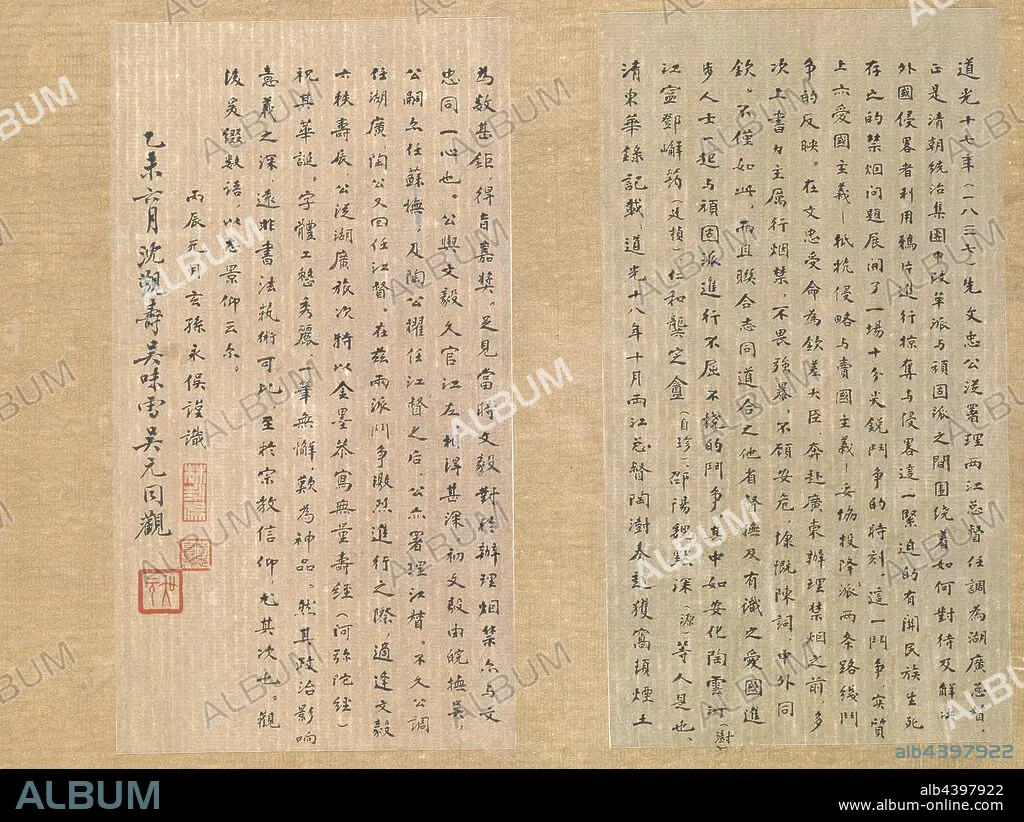 道光十七年(一八三七)先文忠公從署理兩江总督任調為湖廣总督,
正是清朝統治集團中改革派与頑固派之間圍绕着如何对待及解决
外國侵畧者利用鴉片進行掠奪与侵畧這一緊迫的有關民族生死
存亡的禁烟问题展開了一場十分尖銳鬥爭的時刻。這一鬥爭,实質
上六愛國主義—抵抗侵略与賣國主義—妥協投降派两条路线鬥
争的反映。在文忠受命為欽差大臣奔赴廣東辦理禁烟之前,多
次上書力主厲行烟禁,不畏強暴,不顧安危,慷慨陳詞,中外同
欽。不僅如此,而且联合志同道合之他省督撫及有識之愛國進
步人士一起与頑固派進行不屈不撓的鬥争,其中如安化陶雲汀(澍)
江寧鄧嶰筠(廷楨)仁和龔定盦(自珍)邵陽魏默深(源)等人是也。
清東華錄記載,道光十八年十月兩江总督陶澍奏起獲窩頓煙土
為数甚鉅,得旨嘉獎。足見當時文毅對於辦理烟禁亦与文
忠同一心也。公與文毅久官江左,相得甚深,初文毅由皖撫吳,
公嗣亦任蘇撫,及陶公擢任江督之后,公亦署理江督。不久公調
任湖廣,陶公又回任江督。在茲兩派鬥争激烈進行之際,適逢文毅
六秩壽辰,公從湖廣旅次特以金墨恭寫無量壽經(阿弥陀経)
祝其華誕。字體工整秀麗,一筆無懈,歎為神品。然其政治影响
意義之深遠非書法執術可比,至於宗教信仰尤其次也。觀
後爰缀数语,以志景仰云尔。
丙辰元月玄孫永俁謹識
乙未六月沈觀壽吳味雪吳元同觀
ALBUM
alb4397922
ALBUM
alb4397922
www.album-online.com